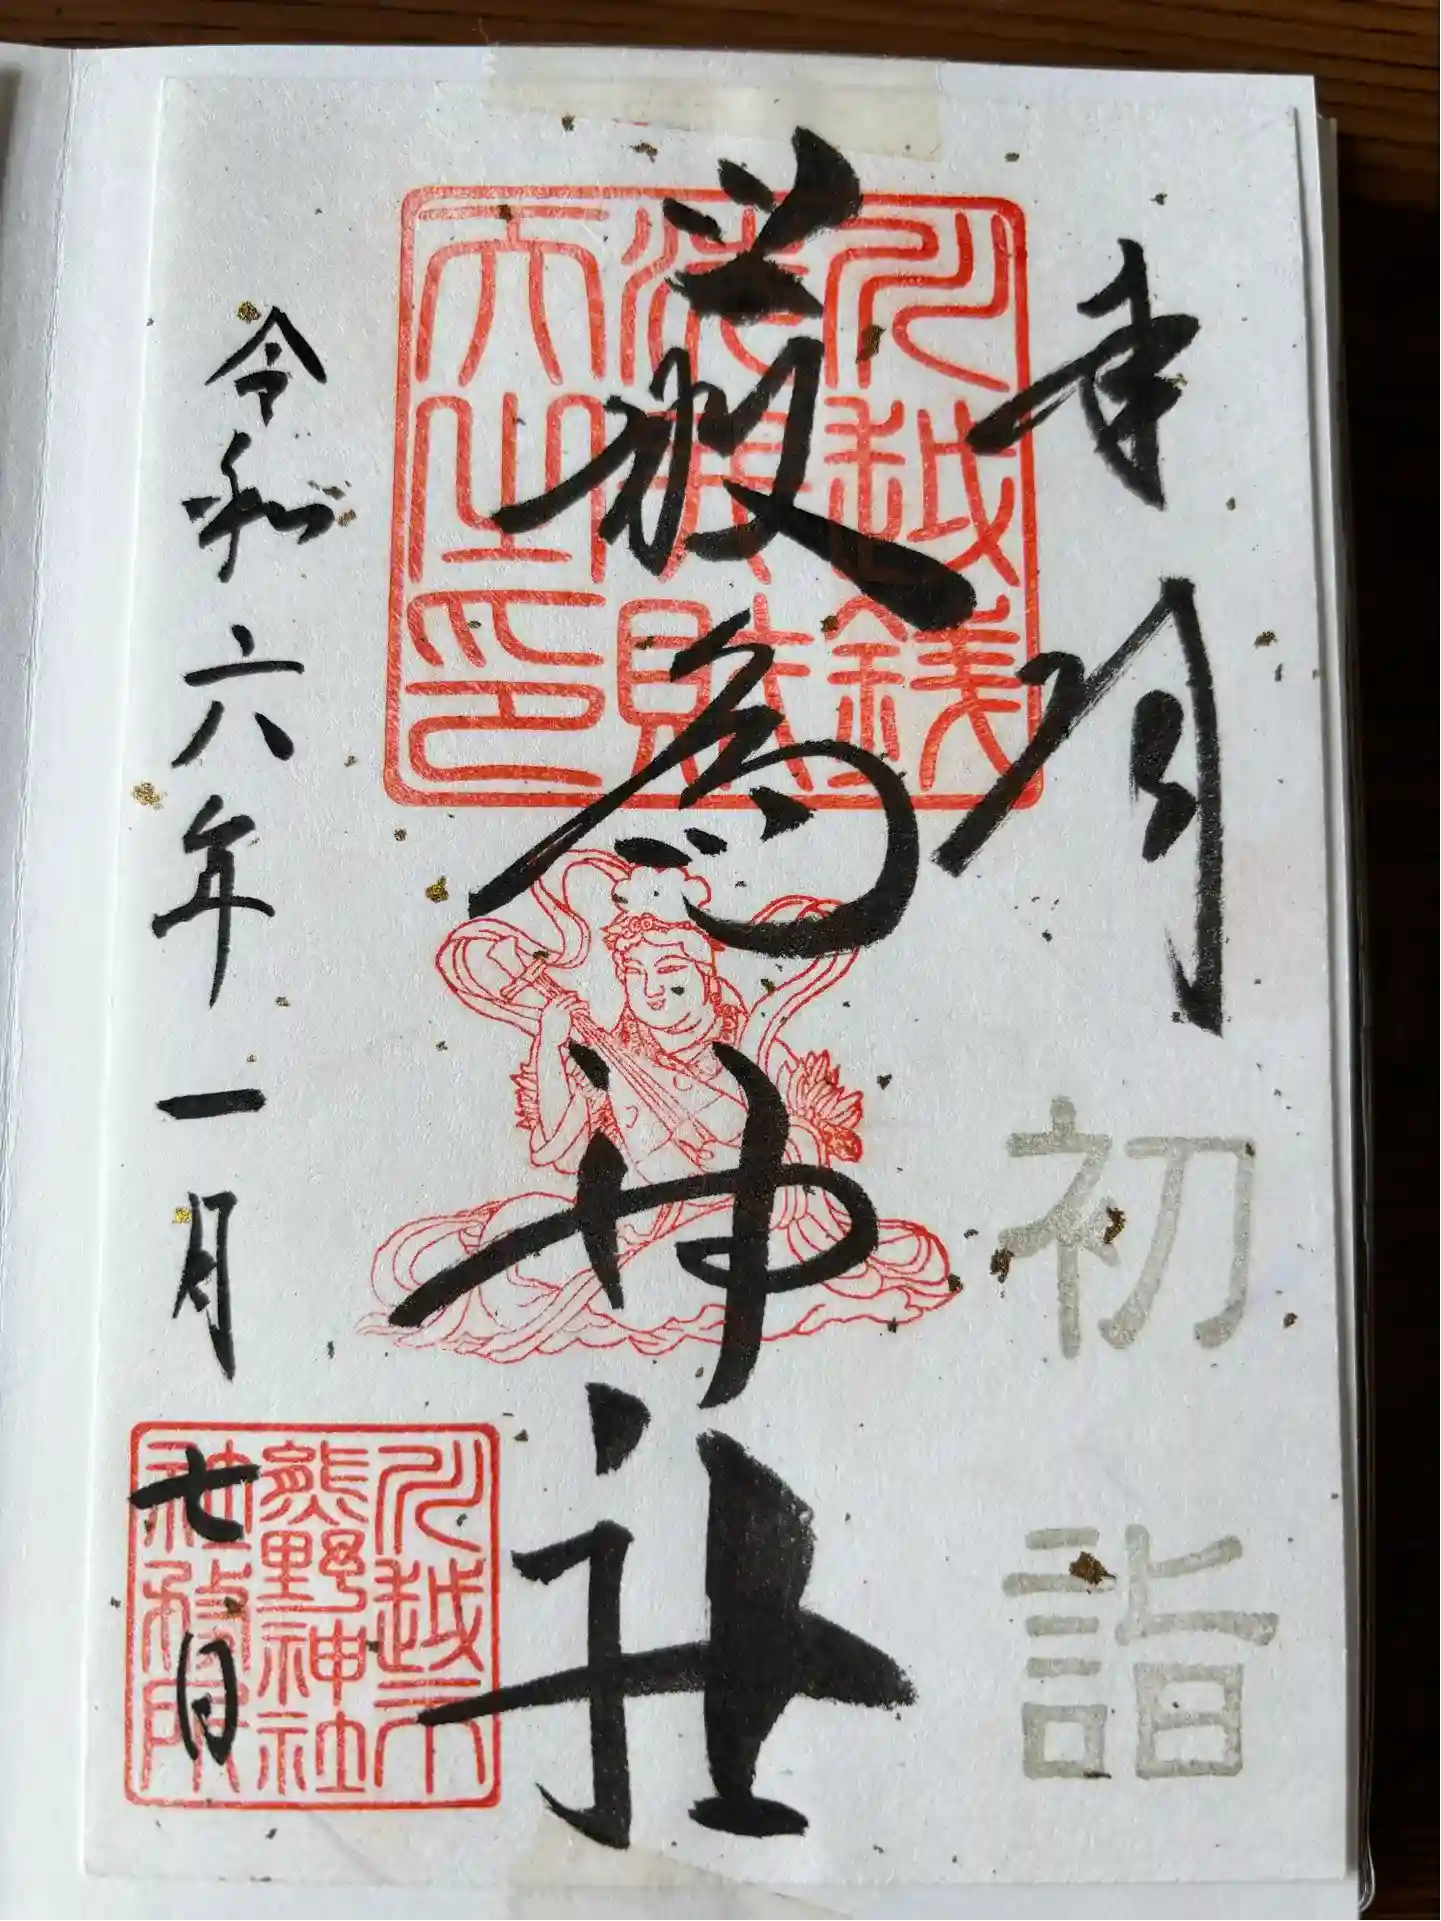 初詣
厳島神社
川越銭
洗弁財
天之印
令和六年一月七日
川越市
熊野神社
社務所